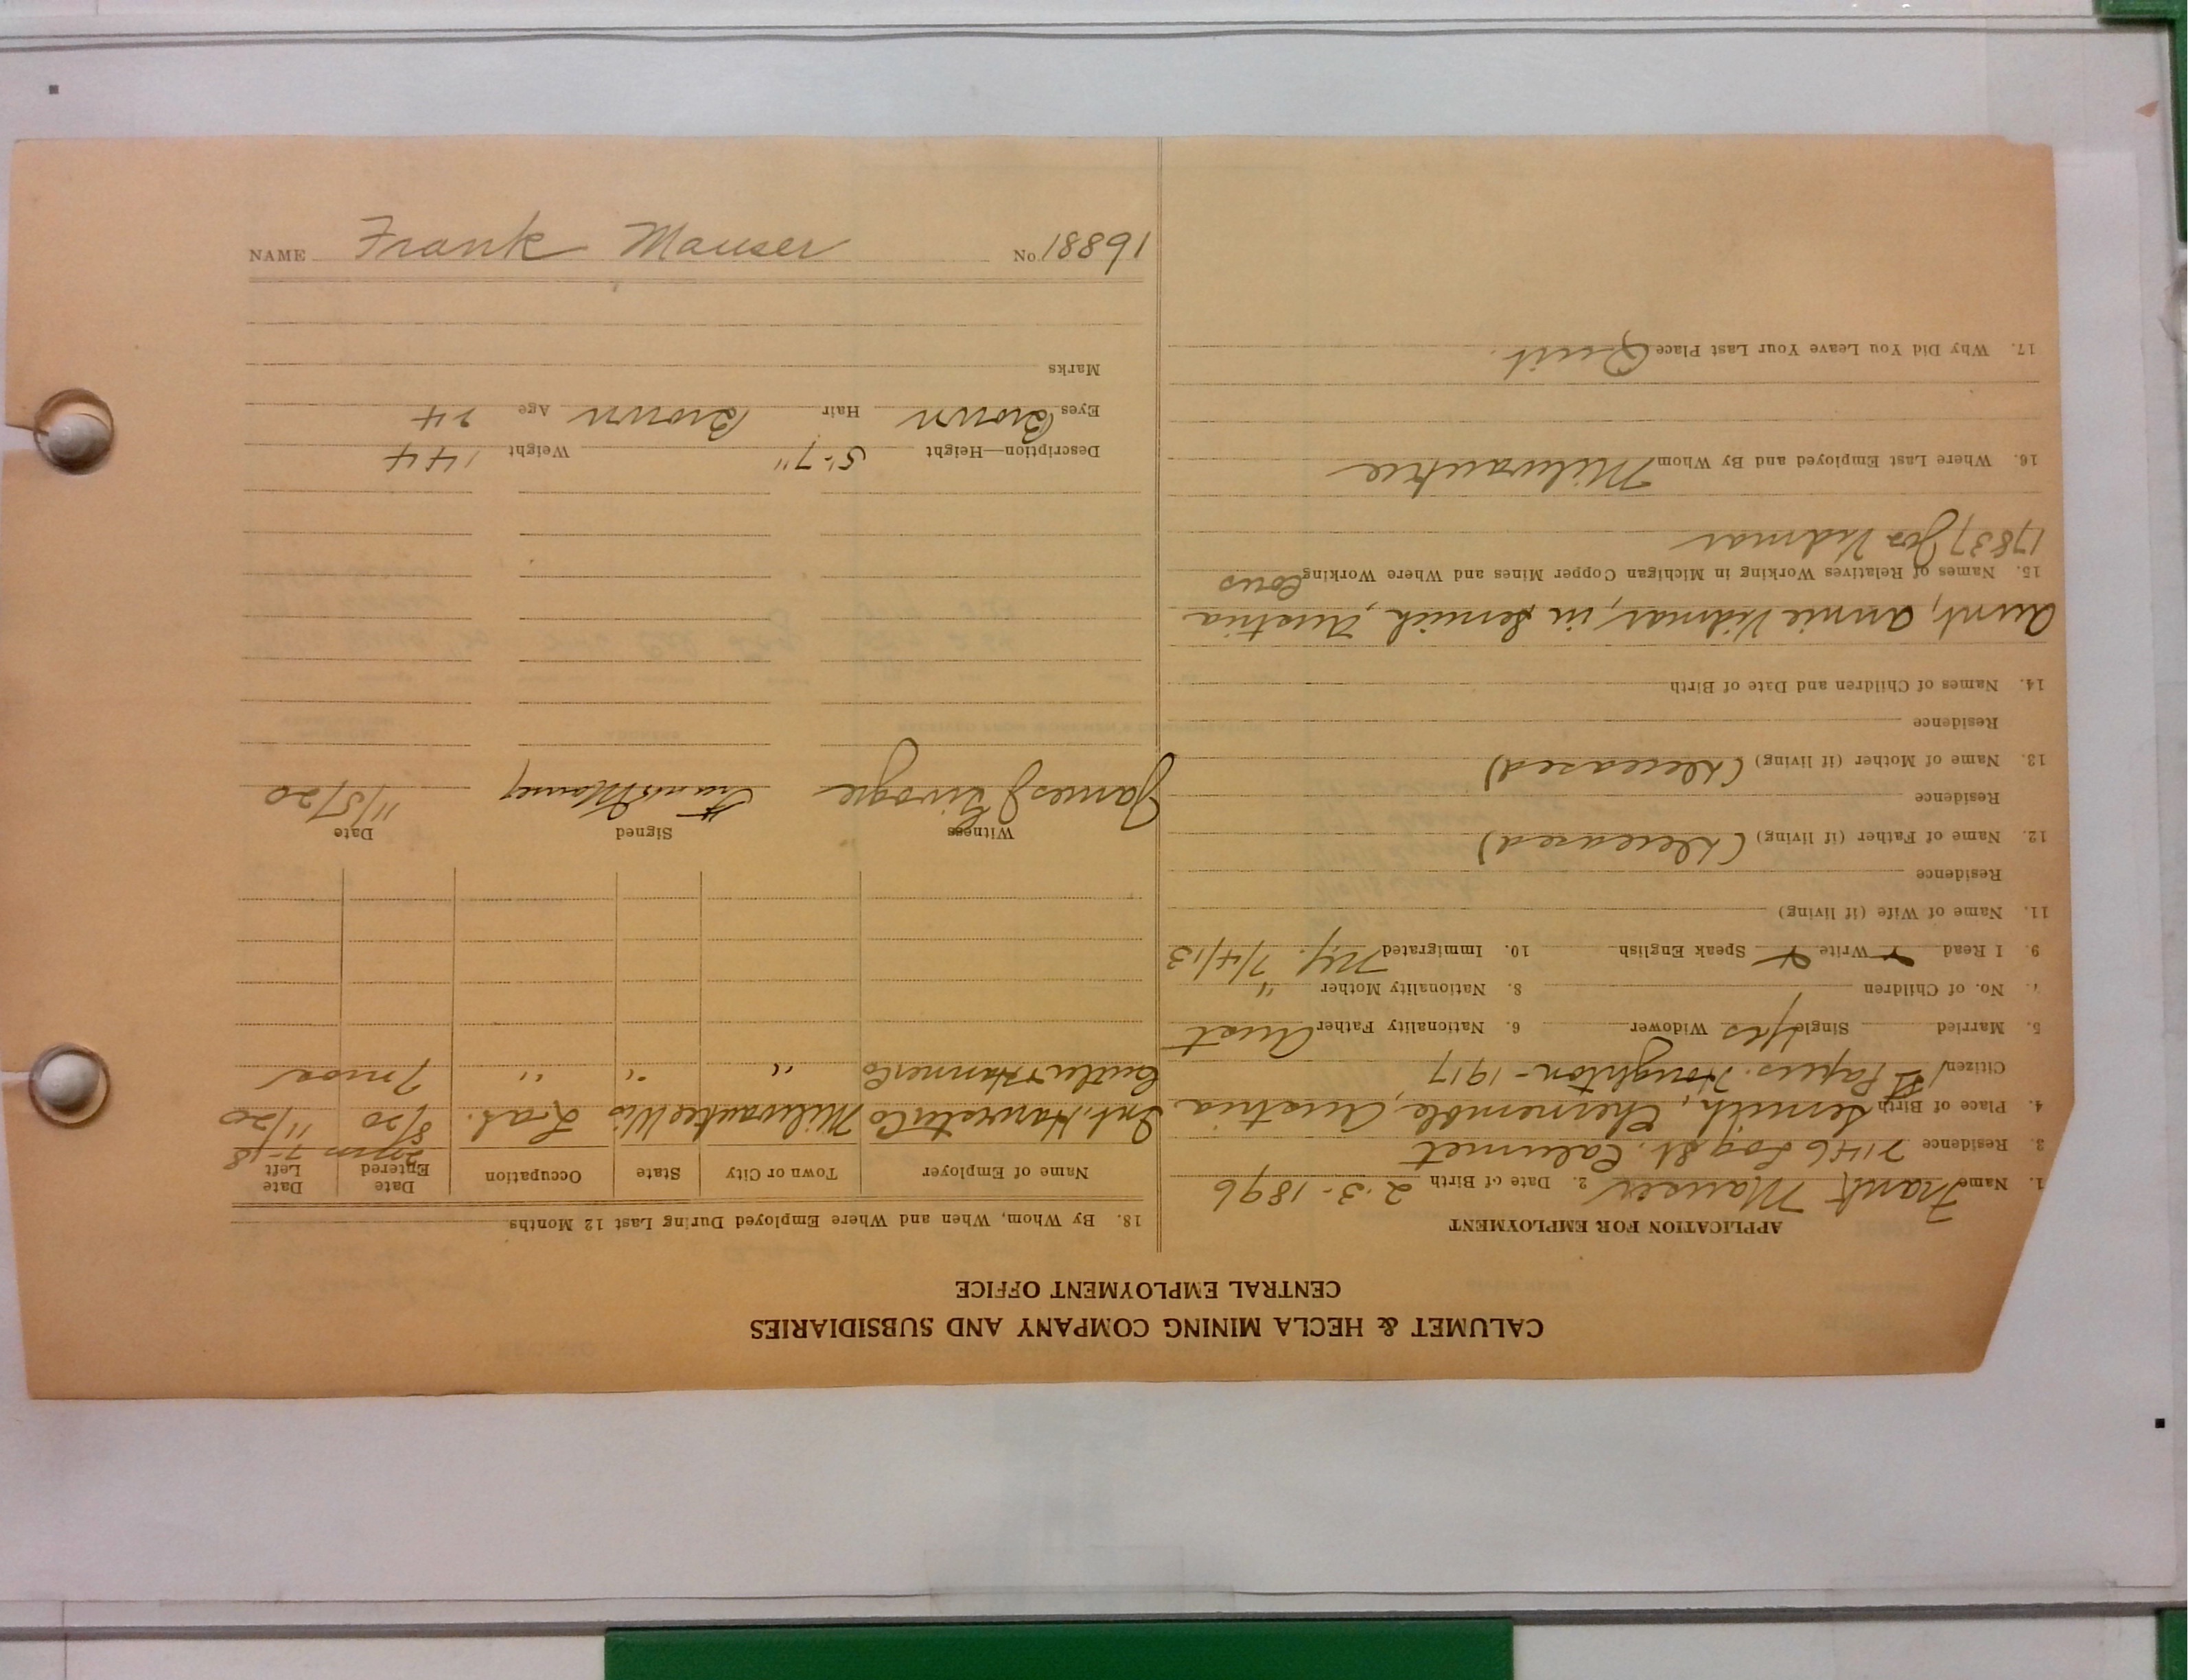 CALUMET & HECLA MINING COMPANY AND SUBSIDIARIES
CENTRAL EMPLOYMENT OFFICE
APPLICATION FOR EMPLOYMENT
1. Name Frank Mauser 2. Date of Birth 2-3-1896
3. Residence 7146 Log St. Calumet
4. Place of Birth Semich, Chernemble, Austria
Citizen 1st Papers. Houghton - 1917
5. Married Single Yes Widower 6. Nationality Father Aust
7. No. of Children 8. Nationality Mother "
9. I Read Write Speak English 10. Immigrated N.Y. 7/4/13
11. Name of Wife (if living)
Residence
12. Name of Father (if living) (deceased)
Residence
13. Name of Mother (if living) (deceased)
Residence
14. Names of Children and Date of Birth
Aunt, Annie Vidmar, in Semich, Austria
15. Names of Relatives Working in Michigan Copper Mines and Where Working Cous
17837 Jos Vidmar
16. Where Last Employed and By Whom Milwaukee
17. Why Did You Leave Your Last Place Quit.
18. By Whom, When and Where Employed During Last 12 Months
Name of Employer Town or City State Occupation Date Entered Date Left
7-18
Int. Harvester Co Milwaukee Wis Lab. 8/20 11/20
Cutler Hammer Co " " " 7 mos
Witness Signed Date
James J 11/5/20
Description—Height 5'-7" Weight 144
Eyes Brown Hair Brown Age 24
Marks
NAME Frank Mauser No. 16881